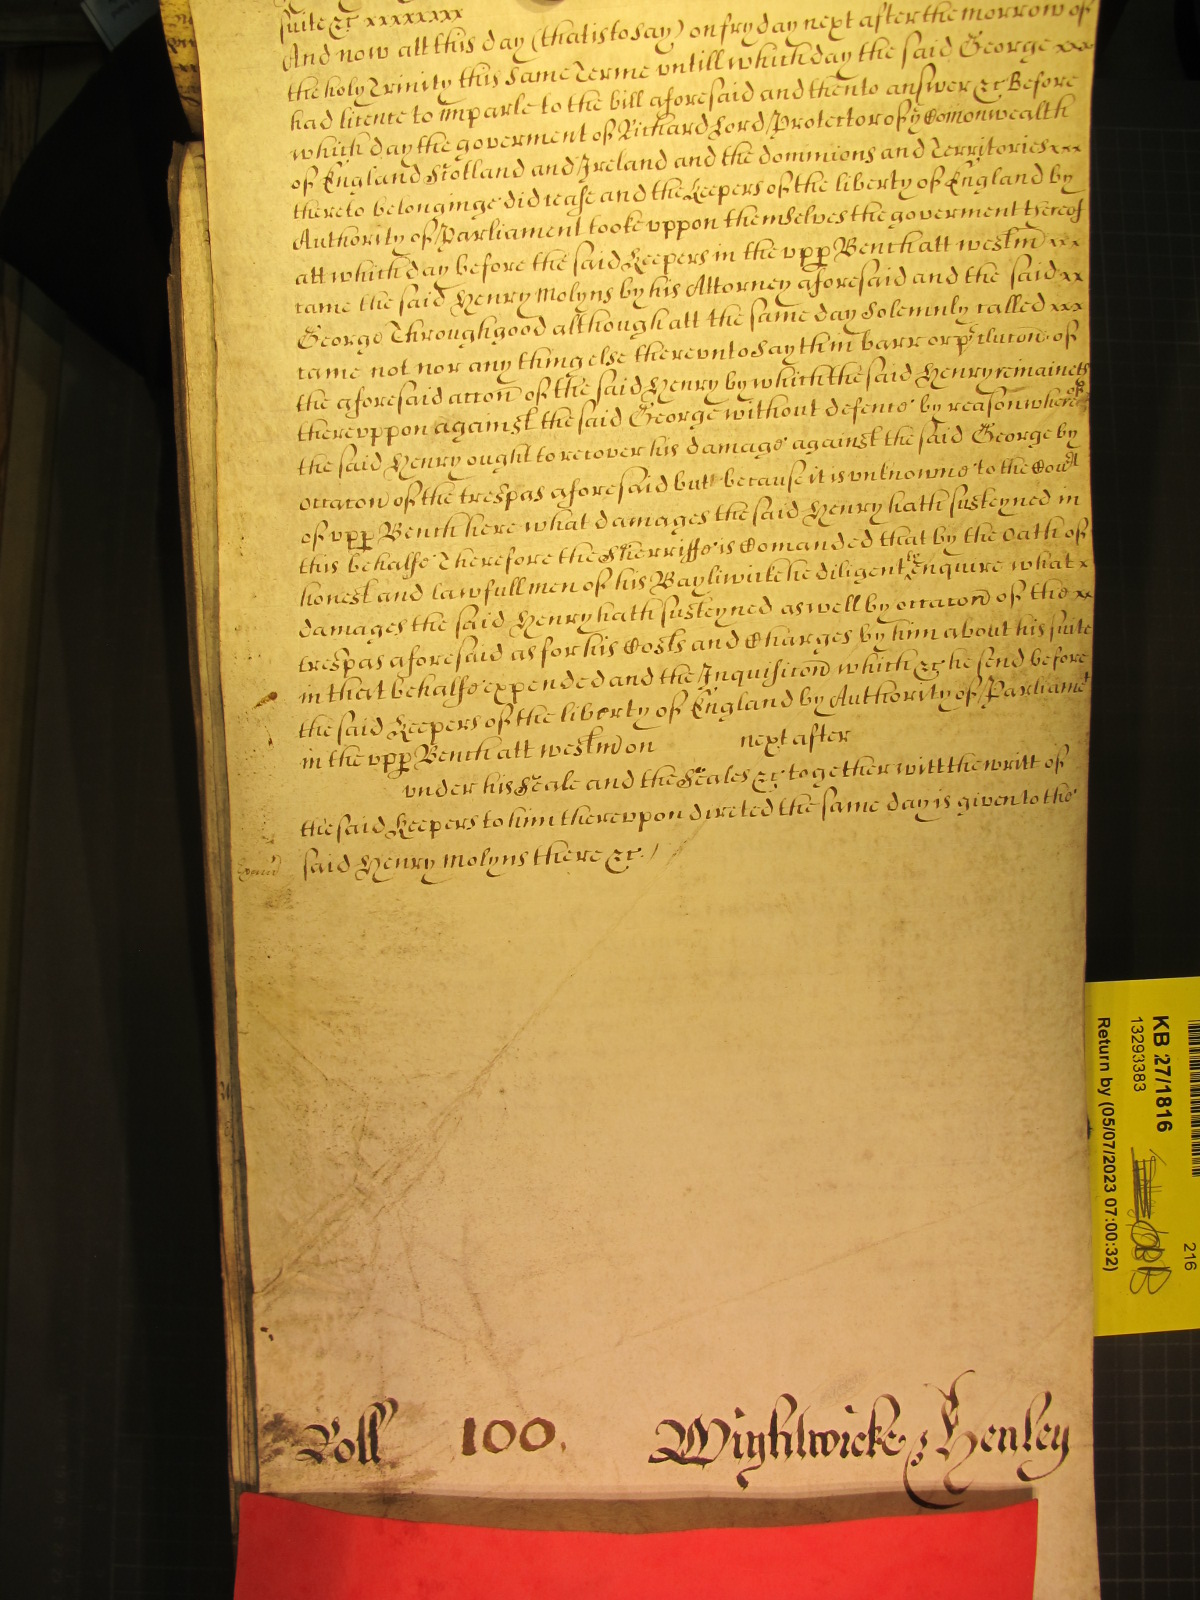 suite &c xxxxxxxx
And now att this day (that is to say) on fryday next after the morrow of
the holy Trinity this same Terme untill which day the said George xxx
had licence to imparle to the bill aforesaid and then to answer &c Before
which day the goverment of Richard Lord Protector of ye Comonwealth
of England Scotland and Ireland and the dominions and Territories xxx
thereto belonginge did cease and the Keepers of the liberty of England by
Authority of Parliament tooke uppon themselves the goverment thereof
att which day before the said Keepers in the upp Bench att westm xxx
came the said Henry Molyns by his Attorney aforesaid and the said xx
George Throughgood although att the same day solemnly called xxx
came not nor any thing else thereunto say th in barr or pclucon of
the aforesaid accon of the said Henry by which the said Henry remaineth
thereuppon against the said George without defence by reason whereof
the said Henry ought to recover his damage against the said George by
occacon of the trespas aforesaid but because it is unknowne to the Court
of upp Bench here what damages the said Henry hath susteyned in
this behalfe Therefore the Sherriffe is Comanded that by the Oath of
honest and lawfull men of his Bayliwicke he diligently enquire what x
damages the said Henry hath susteyned as well by occacon of the xx
trespas aforesaid as for his Costs and Charges by him about his suite
in that behalfe expended and the Inquisicon which &c he send before
the said Keepers of the liberty of England by Authority of Parliamt
in the upp Bench att westm on next after
under his Seale and the Seales &c together witt the writt of
the said Keepers to him thereupon direted the same day is given to the
said Henry Molyns there &c
Roll 100. Wightwicke & Henley
KB 27/1816
13293383
Return by (05/07/2023 07:00:32)
216